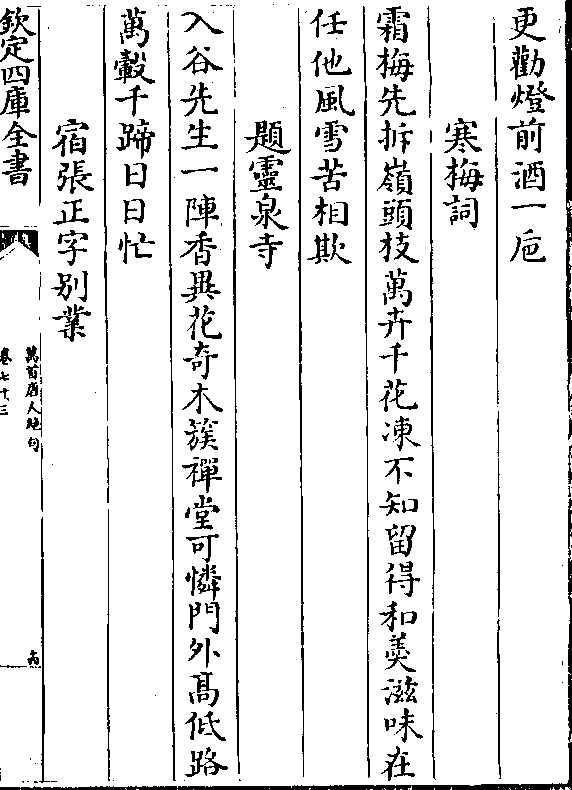 更勸燈前酒一巵
寒梅詞
霜梅先拆嶺頭枝萬卉千花凍不知留得和羮滋味在
任他風雪苦相欺
題靈泉寺
入谷先生一陣香異花奇木簇禪堂可憐門外髙低路
萬轂千蹄日日忙
宿張正字别業
欽定四庫全書
萬首唐人絶句
卷七十三